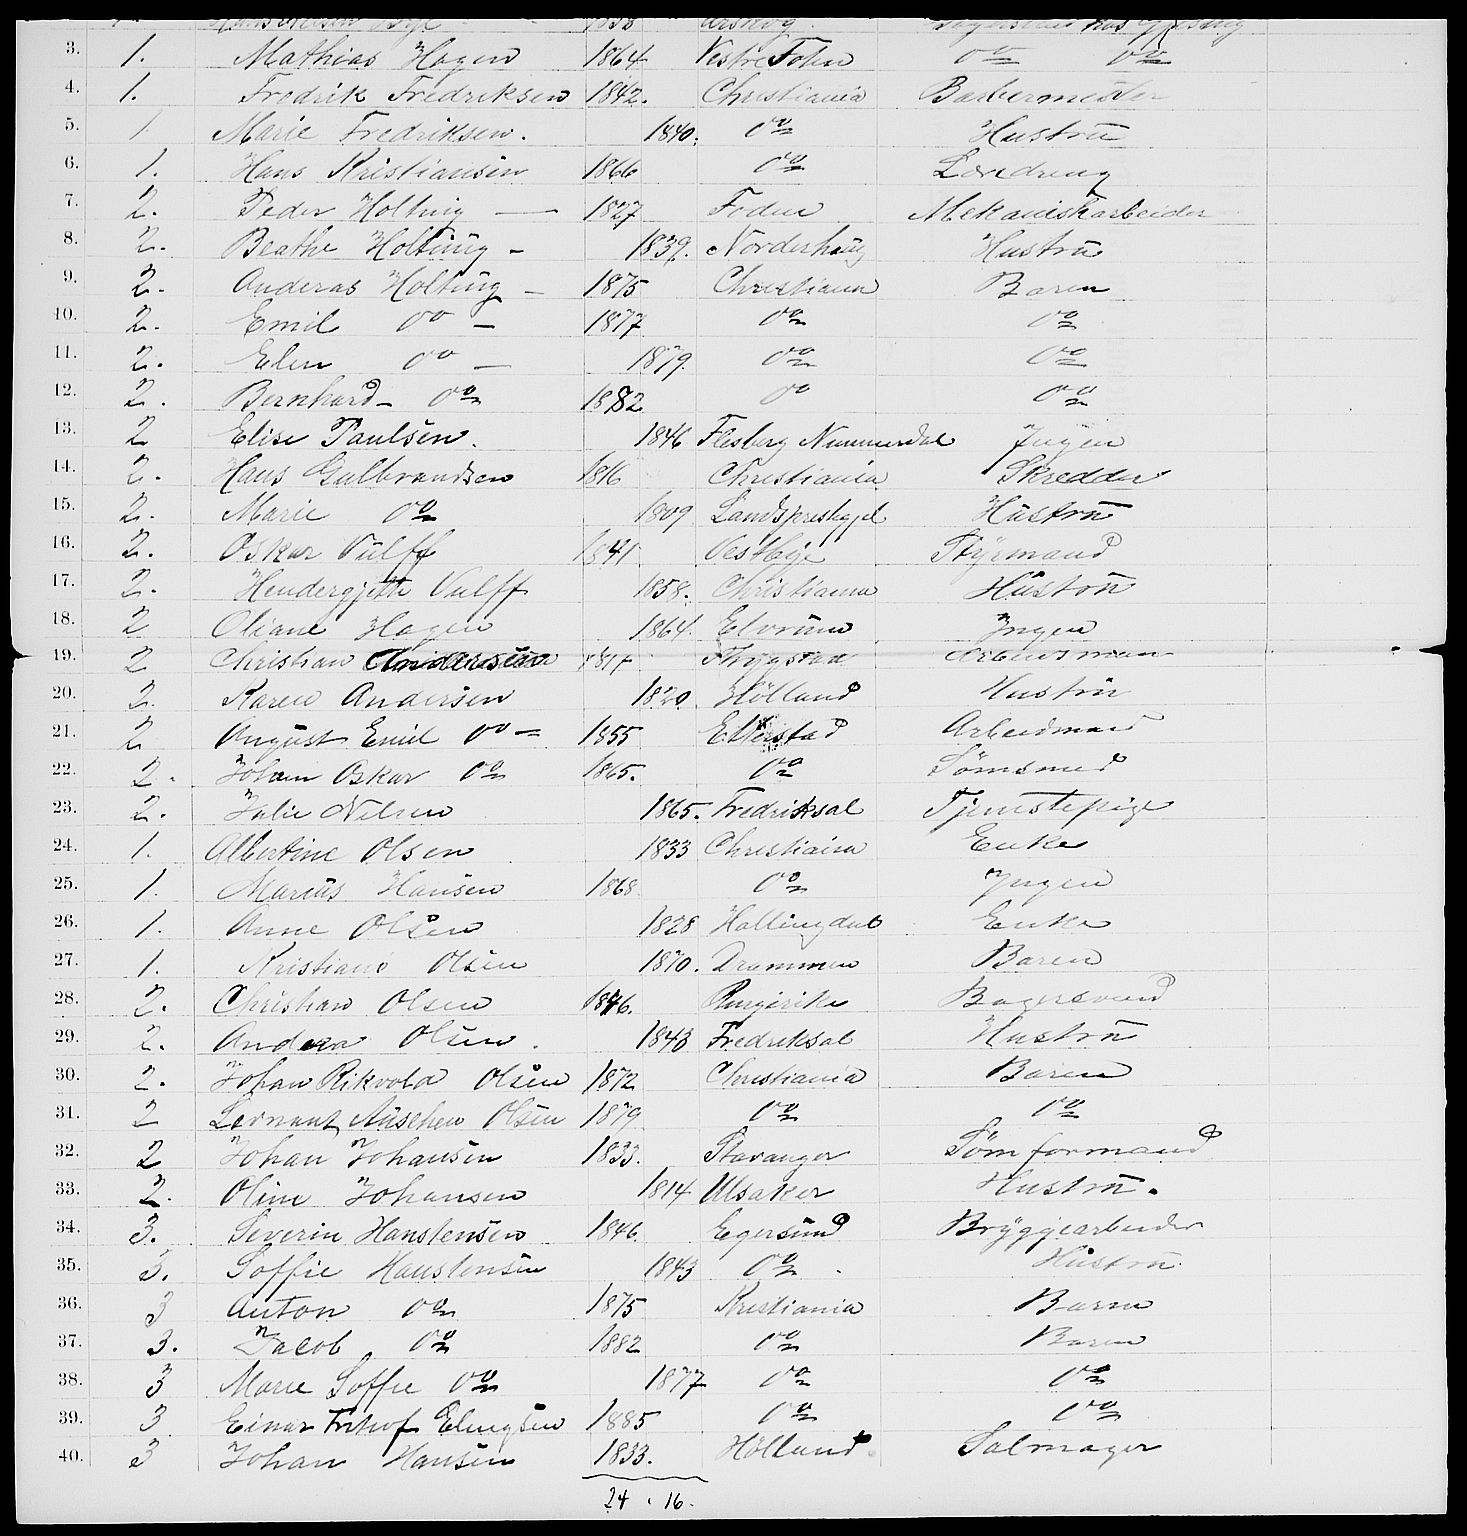 3. 1. Mathias Hagen 1864 Vestre Toten do do
4. 1. Fredrik Fredriksen 1842. Christiania Barbermester
5. 1. Marie Fredriksen. 1840. do Hustru
6. 1. Hans Kristiansen 1866 do Læredreng
7. 2. Peder Holtung — 1827 Foden Mekaniskarbeider
8. 2. Beathe Holtung – 1839. Norderhaug Hustru
9. 2. Anderas Holtung – 1875 Christiania Baren
10. 2. Emil do – 1877 do do
11. 2. Elen do – 1879. do do
12. 2. Bernhard – do 1882 do do
13. 2 Elise Paulsen. 1846 Flesberg Nummerdal Ingen
14. 2. Hans Gulbrandsen 1816 Christiania Skredder
15. 2. Marie do 1809 Landsprestegjel Hustru
16. 2. Oskar Vulff 1841 Vestbye Styrmand
17. 2. Hendergjette Vulff 1858. Christiania Hustru
18. 2 Oliane Hagen 1864. Elvrum Ingen
19. 2 Christian Andersen 1817 Thrygstad Arbeidsman
20. 2. Karen Andersen 1820. Hølland Hustru
21. 2 August Emil do – 1855 Etterstad Arbeidmand
22. 2. Johan Oskar do 1865. do Sømsmed
23. 2. Julie Nilsen 1865. Fredriksal Tjenestepige
24. 1. Albertine Olsen 1833 Christiania Enke
25. 1. Marius Hansen 1868 do Ingen
26. 1. Anne Olsen 1828 Hallingdal Enke
27. 1. Kristiane Olsen 1870. Drammen Baren
28. 2. Christian Olsen 1846. Ringerike Bagersvend
29. 2. Andrea Olsen. 1843 Fredriksal Hustru
30. 2. Johan Rikvold Olsen 1872 Christiania Baren
31. 2 Olsen 1879 do do
32. 2 Johan Johansen 1833. Stavanger Sømformand
33. 2. Oline Johansen 1814 Ulsaker Hustru.
34. 3. Severin Hanstensen 1846 Egersund Bryggearbeider
35. 3. Soffie Hanstensen 1843 do Hustru
36. 3 Anton do 1875 Kristiania Barn
37. 3. Jacob do 1882 do Baren
38. 3 Marie Soffie do 1877 do do
39. 3 Einar Frihof Elingsen 1885 do do
40. 3 Johan Hansen 1833. Hølland Salmager
24 . 16.